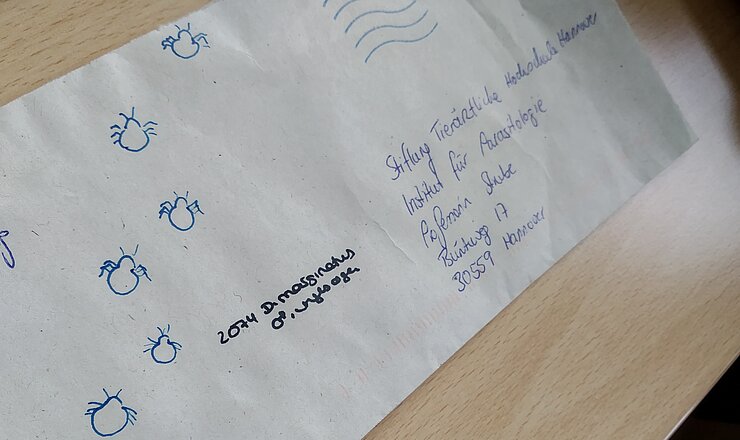 Stiftung Tierärztliche Hochschule Hannover
Institut für Parasitologie
Strube
Bünteweg 17
30559 Hannover
2074 D. marginatus